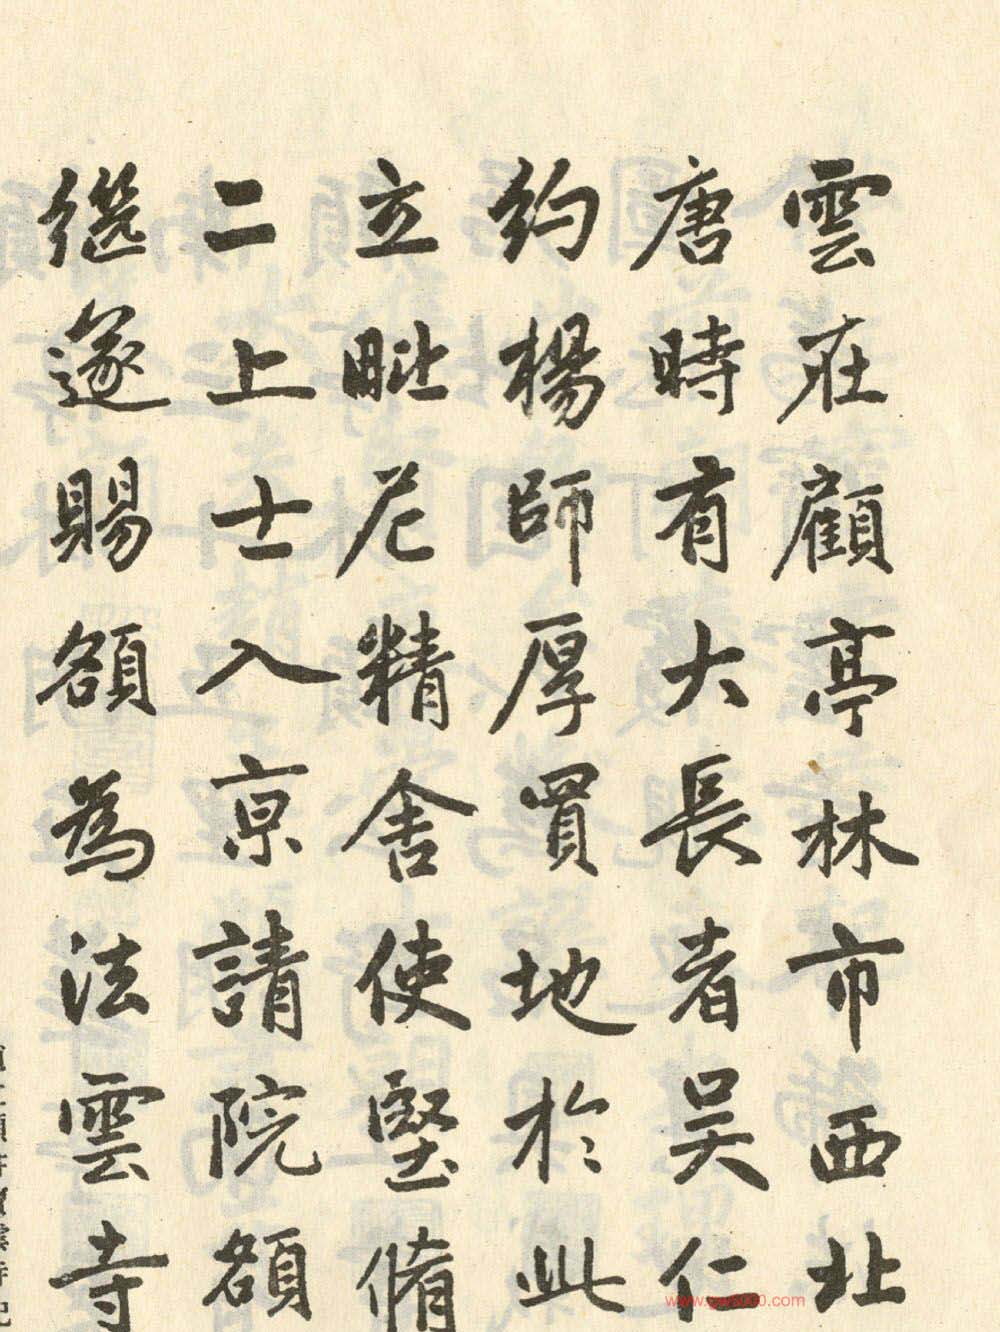 雲在顧亭林市西北
唐時有大長者吴仁
約楊師厚買地於此
立毗尼精舍使堅脩
二上士入京請院額
繼遂賜額為法雲寺
www.gw8000.com